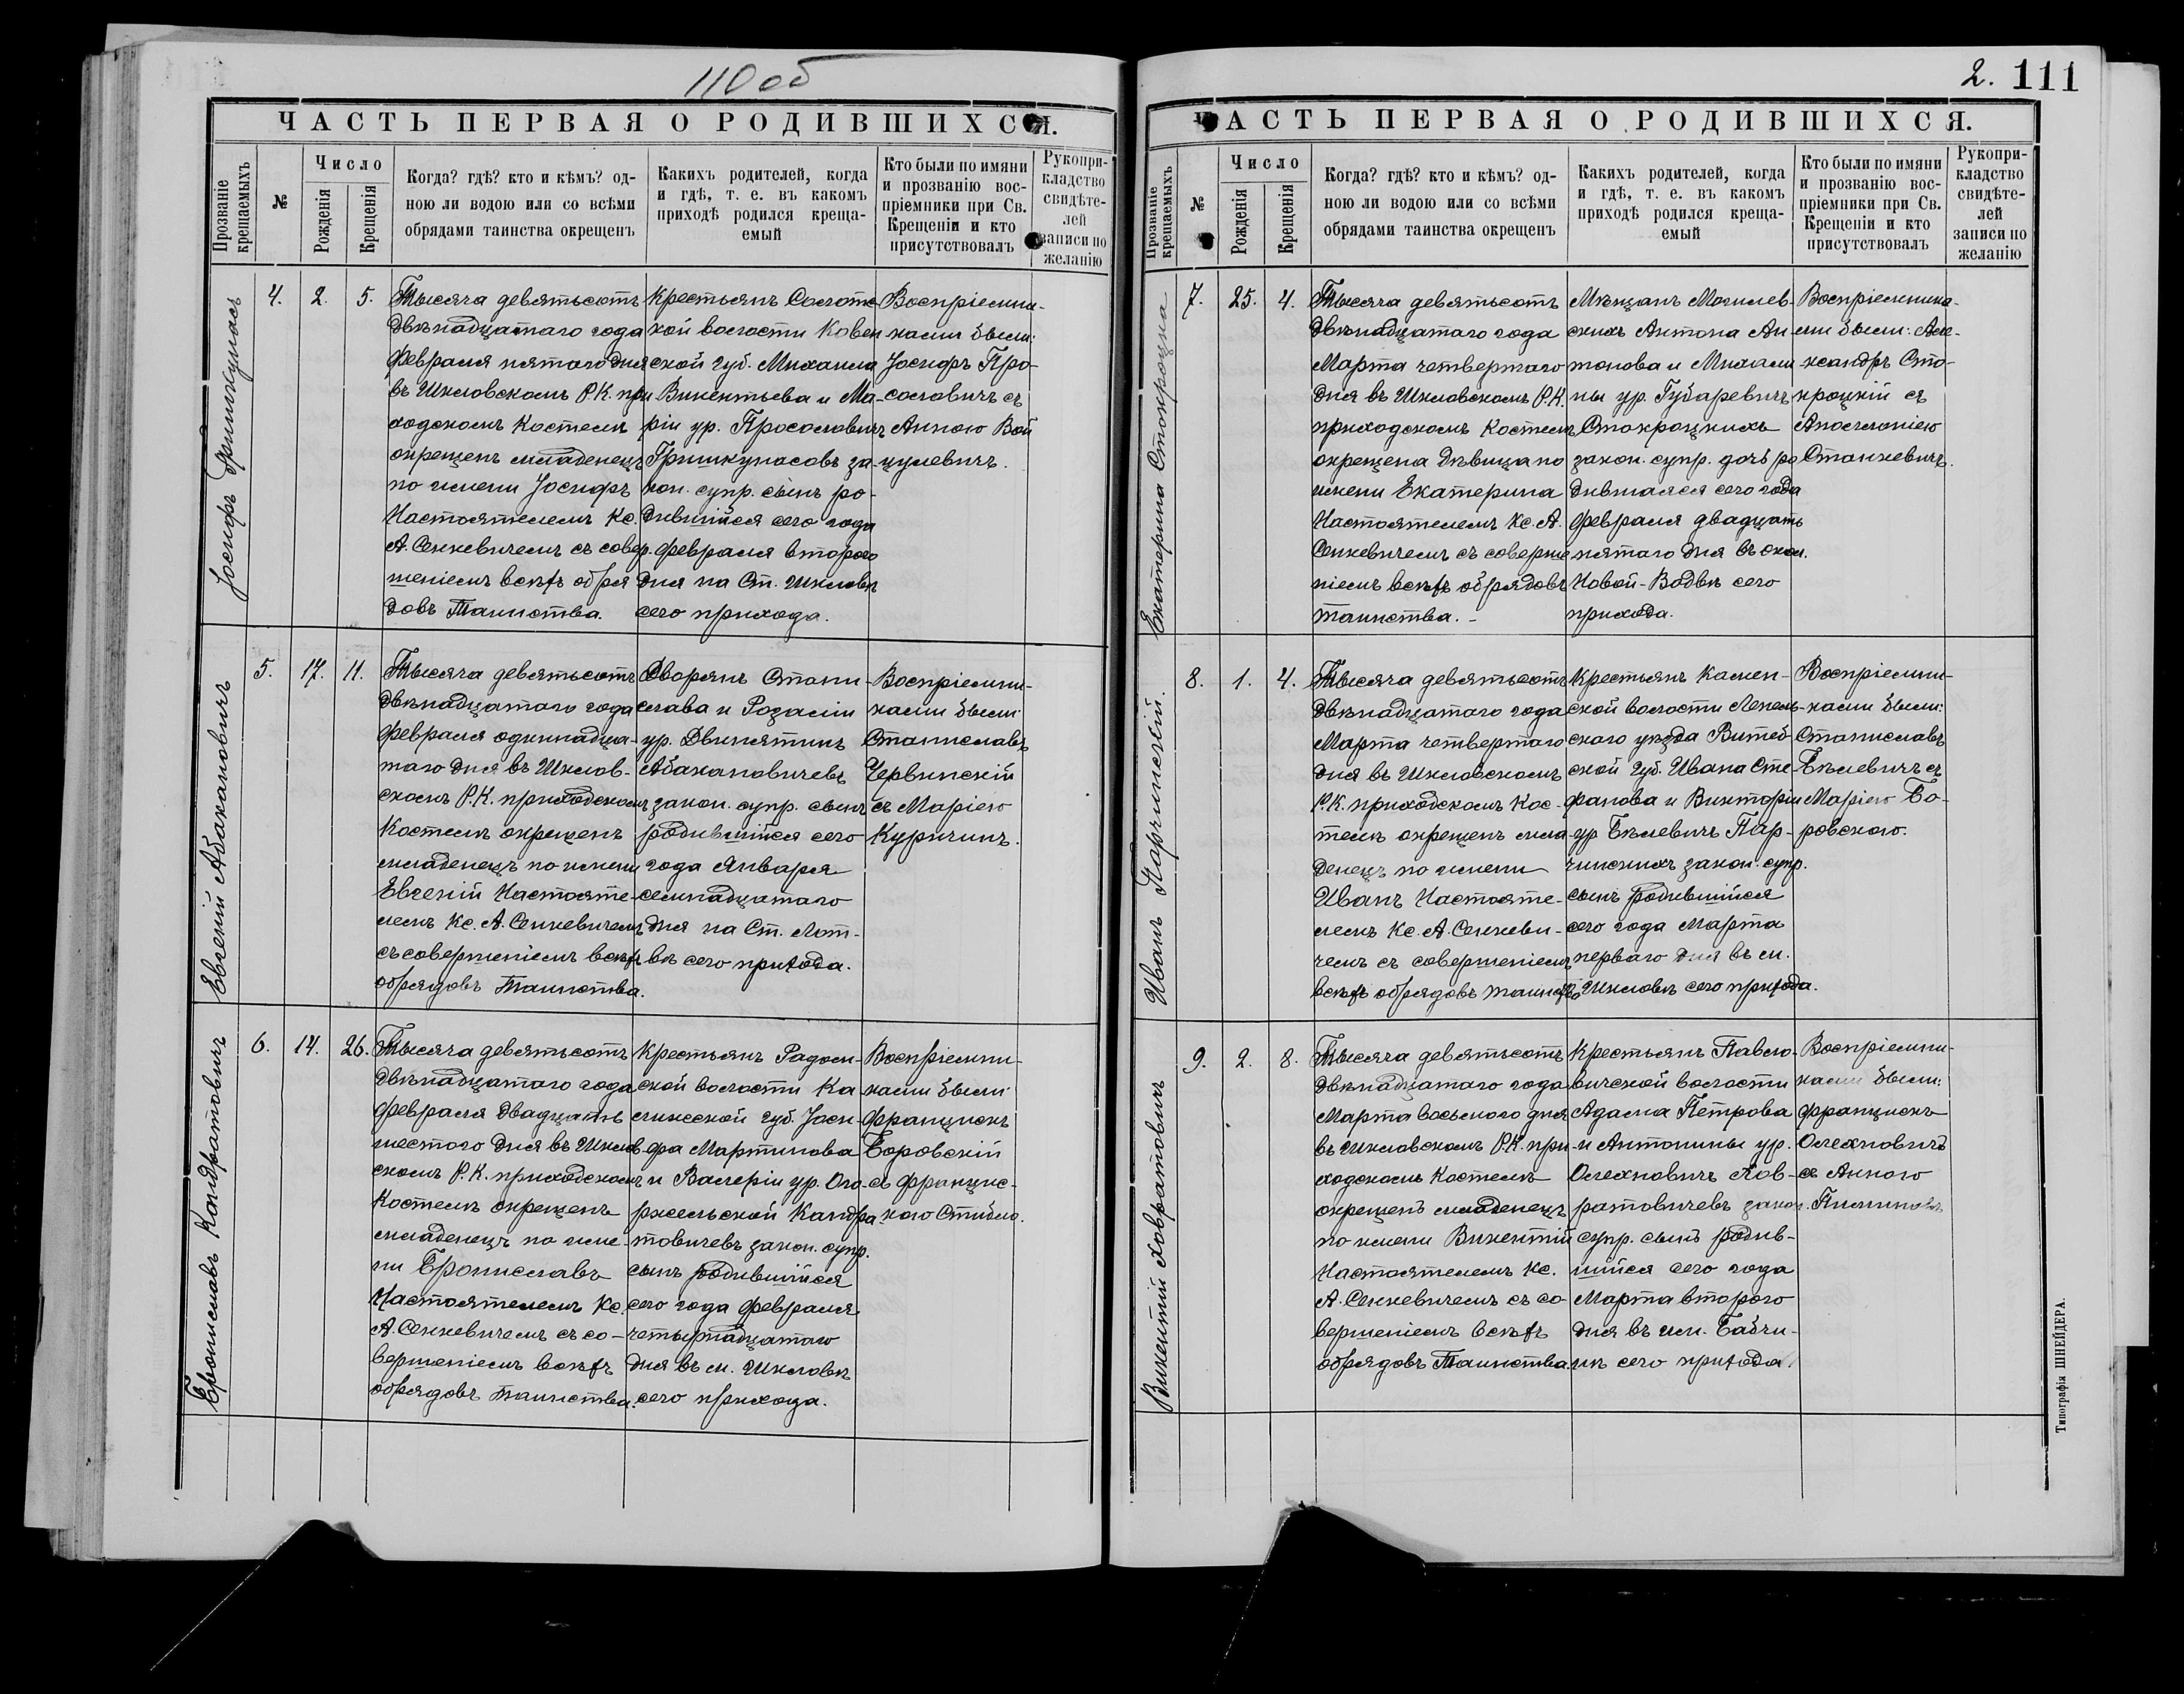 110 об
ЧАСТЬ ПЕРВАЯ О РОДИВШИХСЯ.
Прозваніе крещаемыхъ
№
Число
Рожденія
Крещенія
Когда? гдѣ? кто и кѣмъ? од-
ною ли водою или со всѣми
обрядами таинства окрещенъ
Какихъ родителей, когда
и гдѣ, т. е. въ какомъ
приходѣ родился креща-
емый
Кто были по имяни
и прозванію вос-
пріемники при Св.
Крещеніи и кто
присутствовалъ
Рукопри-
кладство
свидѣте-
лей
записи по
желанію
Іосифъ Гришкунасъ
4.
2.
5.
Тысяча девятьсотъ
двѣнадцатаго года
февраля пятаго дня
въ Шкловскомъ Р.К. при
ходскомъ Костелѣ
окрещенъ младенецъ
по имени Іосифъ
Настоятелемъ Кс.
А. Сенкевичемъ съ совер-
шеніемъ всѣхъ обря
довъ Таинства.
Крестьянъ Солотс
кой волости Ковен
ской губ. Михаила
Викентьева и Ма-
ріи ур. Просоловичъ
Гришкунасовъ за-
кон. супр. сынъ ро-
дившійся сего года
февраля второго
дня на Ст. Шкловѣ
сего прихода.
Воспріемни-
ками были:
Іосифъ Про-
соловичъ съ
Анною Вой
цулевичъ.
Евгеній Абакановичъ
5.
17.
11.
Тысяча девятьсотъ
двѣнадцатаго года
февраля одиннадца-
таго дня въ Шклов-
скомъ Р.К. приходскомъ
Костелѣ окрещенъ
младенецъ по имени
Евгеній Настояте-
лемъ Кс. А. Сенкевичемъ
съ совершеніемъ всѣхъ
обрядовъ Таинства.
Дворянъ Стани-
слава и Розаліи
ур. Двинятинъ
Абакановичевъ
закон. супр. сынъ
родившійся сего
года Января
семнадцатаго
дня на Ст. Лот-
вѣ сего прихода.
Воспріемни-
ками были
Станиславъ
Червинскій
съ Маріею
Куричинъ.
Брониславъ Кандратовичъ
6.
14.
26.
Тысяча девятьсотъ
двѣнадцатаго года
февраля двадцать
шестого дня въ Шклов-
скомъ Р.К. приходскомъ
Костелѣ окрещенъ
младенецъ по име-
ни Брониславъ
Настоятелемъ Кс.
А. Сенкевичемъ съ со-
вершеніемъ всѣхъ
обрядовъ таинства.
Крестьянъ Радом-
ской волости Ка
лишской губ. Іоси-
фа Мартинова
и Валеріи ур. Ого-
ржельской Кандра
товичевъ закон. супр.
сынъ родившійся
сего года февраля
четырнадцатаго
дня въ м. Шкловѣ
сего прихода.
Воспріемни-
ками были
Францискъ
Боровскій
съ Францис-
кою Стибло.
2. 111
ЧАСТЬ ПЕРВАЯ О РОДИВШИХСЯ.
Прозваніе крещаемыхъ
№
Число
Рожденія
Крещенія
Когда? гдѣ? кто и кѣмъ? од-
ною ли водою или со всѣми
обрядами таинства окрещенъ
Какихъ родителей, когда
и гдѣ, т. е. въ какомъ
приходѣ родился креща-
емый
Кто были по имяни
и прозванію вос-
пріемники при Св.
Крещеніи и кто
присутствовалъ
Рукопри-
кладство
свидѣте-
лей
записи по
желанію
Екатерина Стокроцка
7.
25.
4.
Тысяча девятьсотъ
двѣнадцатаго года
Марта четвертаго
дня въ Шкловскомъ Р.К.
приходскомъ Костелѣ
окрещена дѣвица по
имени Екатерина
Настоятелемъ Кс. А.
Сенкевичемъ съ соверше
ніемъ всѣхъ обрядовъ
таинства.
Мѣщанъ Могилев-
скихъ Антона Ан-
тонова и Михали-
ны ур. Губаревичъ
Стокроцкихъ
закон. супр. дочь ро
дившаяся сего года
февраля двадцать
пятаго дня въ окол.
Новой-Водвѣ сего
прихода.
Воспріемника-
ми были: Але-
ксандръ Сто-
кроцкій съ
Аполлоніею
Станкевичъ.
Иванъ Парчинскій.
8.
1.
4.
Тысяча девятьсотъ
двѣнадцатаго года
Марта четвертаго
дня въ Шкловскомъ
Р.К. приходскомъ Кос-
телѣ окрещенъ мла-
денецъ по имени
Иванъ Настояте-
лемъ Кс. А. Сенкеви-
чемъ съ совершеніемъ
всѣхъ обрядовъ таинства
Крестьянъ Камен-
ской волости Лепель-
скаго уѣзда Витеб-
ской губ. Ивана Сте-
фанова и Викторіи
ур. Бѣлевичъ Пар-
чинскихъ закон. супр.
сынъ родившійся
сего года Марта
перваго дня въ м.
Шкловѣ сего прихода.
Воспріемни-
ками были:
Станиславъ
Бѣлевичъ съ
Маріею Бо-
ровскою.
Викентій Ховратовичъ
9.
2.
8.
Тысяча девятьсотъ
двѣнадцатаго года
Марта восьмого дня
въ Шкловскомъ Р.К. при-
ходскомъ Костелѣ
окрещенъ младенецъ
по имени Викентій
Настоятелемъ Кс.
А. Сенкевичемъ съ со-
вершеніемъ всѣхъ
обрядовъ Таинства
Крестьянъ Павло-
вичской волости
Адама Петрова
и Антонины ур.
Олехновичъ Хов-
ратовичевъ закон.
супр. сынъ родив-
шійся сего года
Марта второго
дня въ им. Бабчи-
нѣ сего прихода.
Воспріемни-
ками были:
Францискъ
Олехновичъ
съ Анною
Типографія ШНЕЙДЕРА.